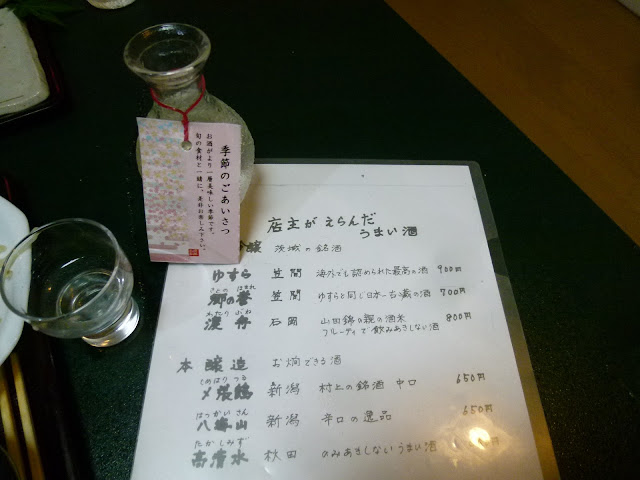 季節のごあいさつ
お酒がより一層美味しい季節です。
旬の食材と一緒に、是非お楽しみ下さい。
店主がえらんだ
うまい酒
吟醸 茨城の銘酒
ゆすら 笠間 海外でも認められた最高の酒 900円
さとの ほまれ
郷の誉 笠間 ゆすらと同じ日本一古い蔵の酒 700円
わたり ぶね
渡舟 石岡 山田錦の親の酒米 800円
フルーティで飲みあきしない酒
本醸造 お燗できる酒
しめはり つる
〆張鶴 新潟 村上の銘酒 中口 650円
はっかい さん
八海山 新潟 辛口の逸品 650円
たか しみず
高清水 秋田 のみあきしないうまい酒